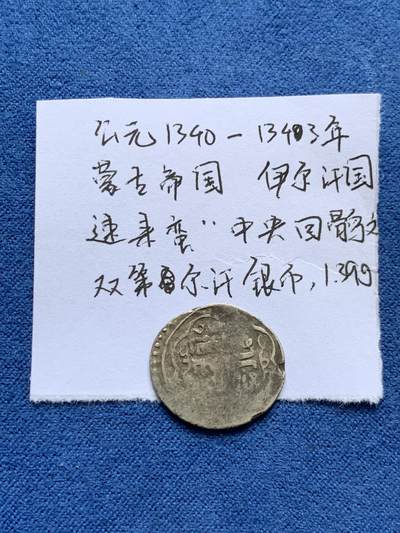 公元1340-1343年
蒙古帝国 伊尔汗国
速来蛮"中央回鹘文
双第尔汗银币,1.39g